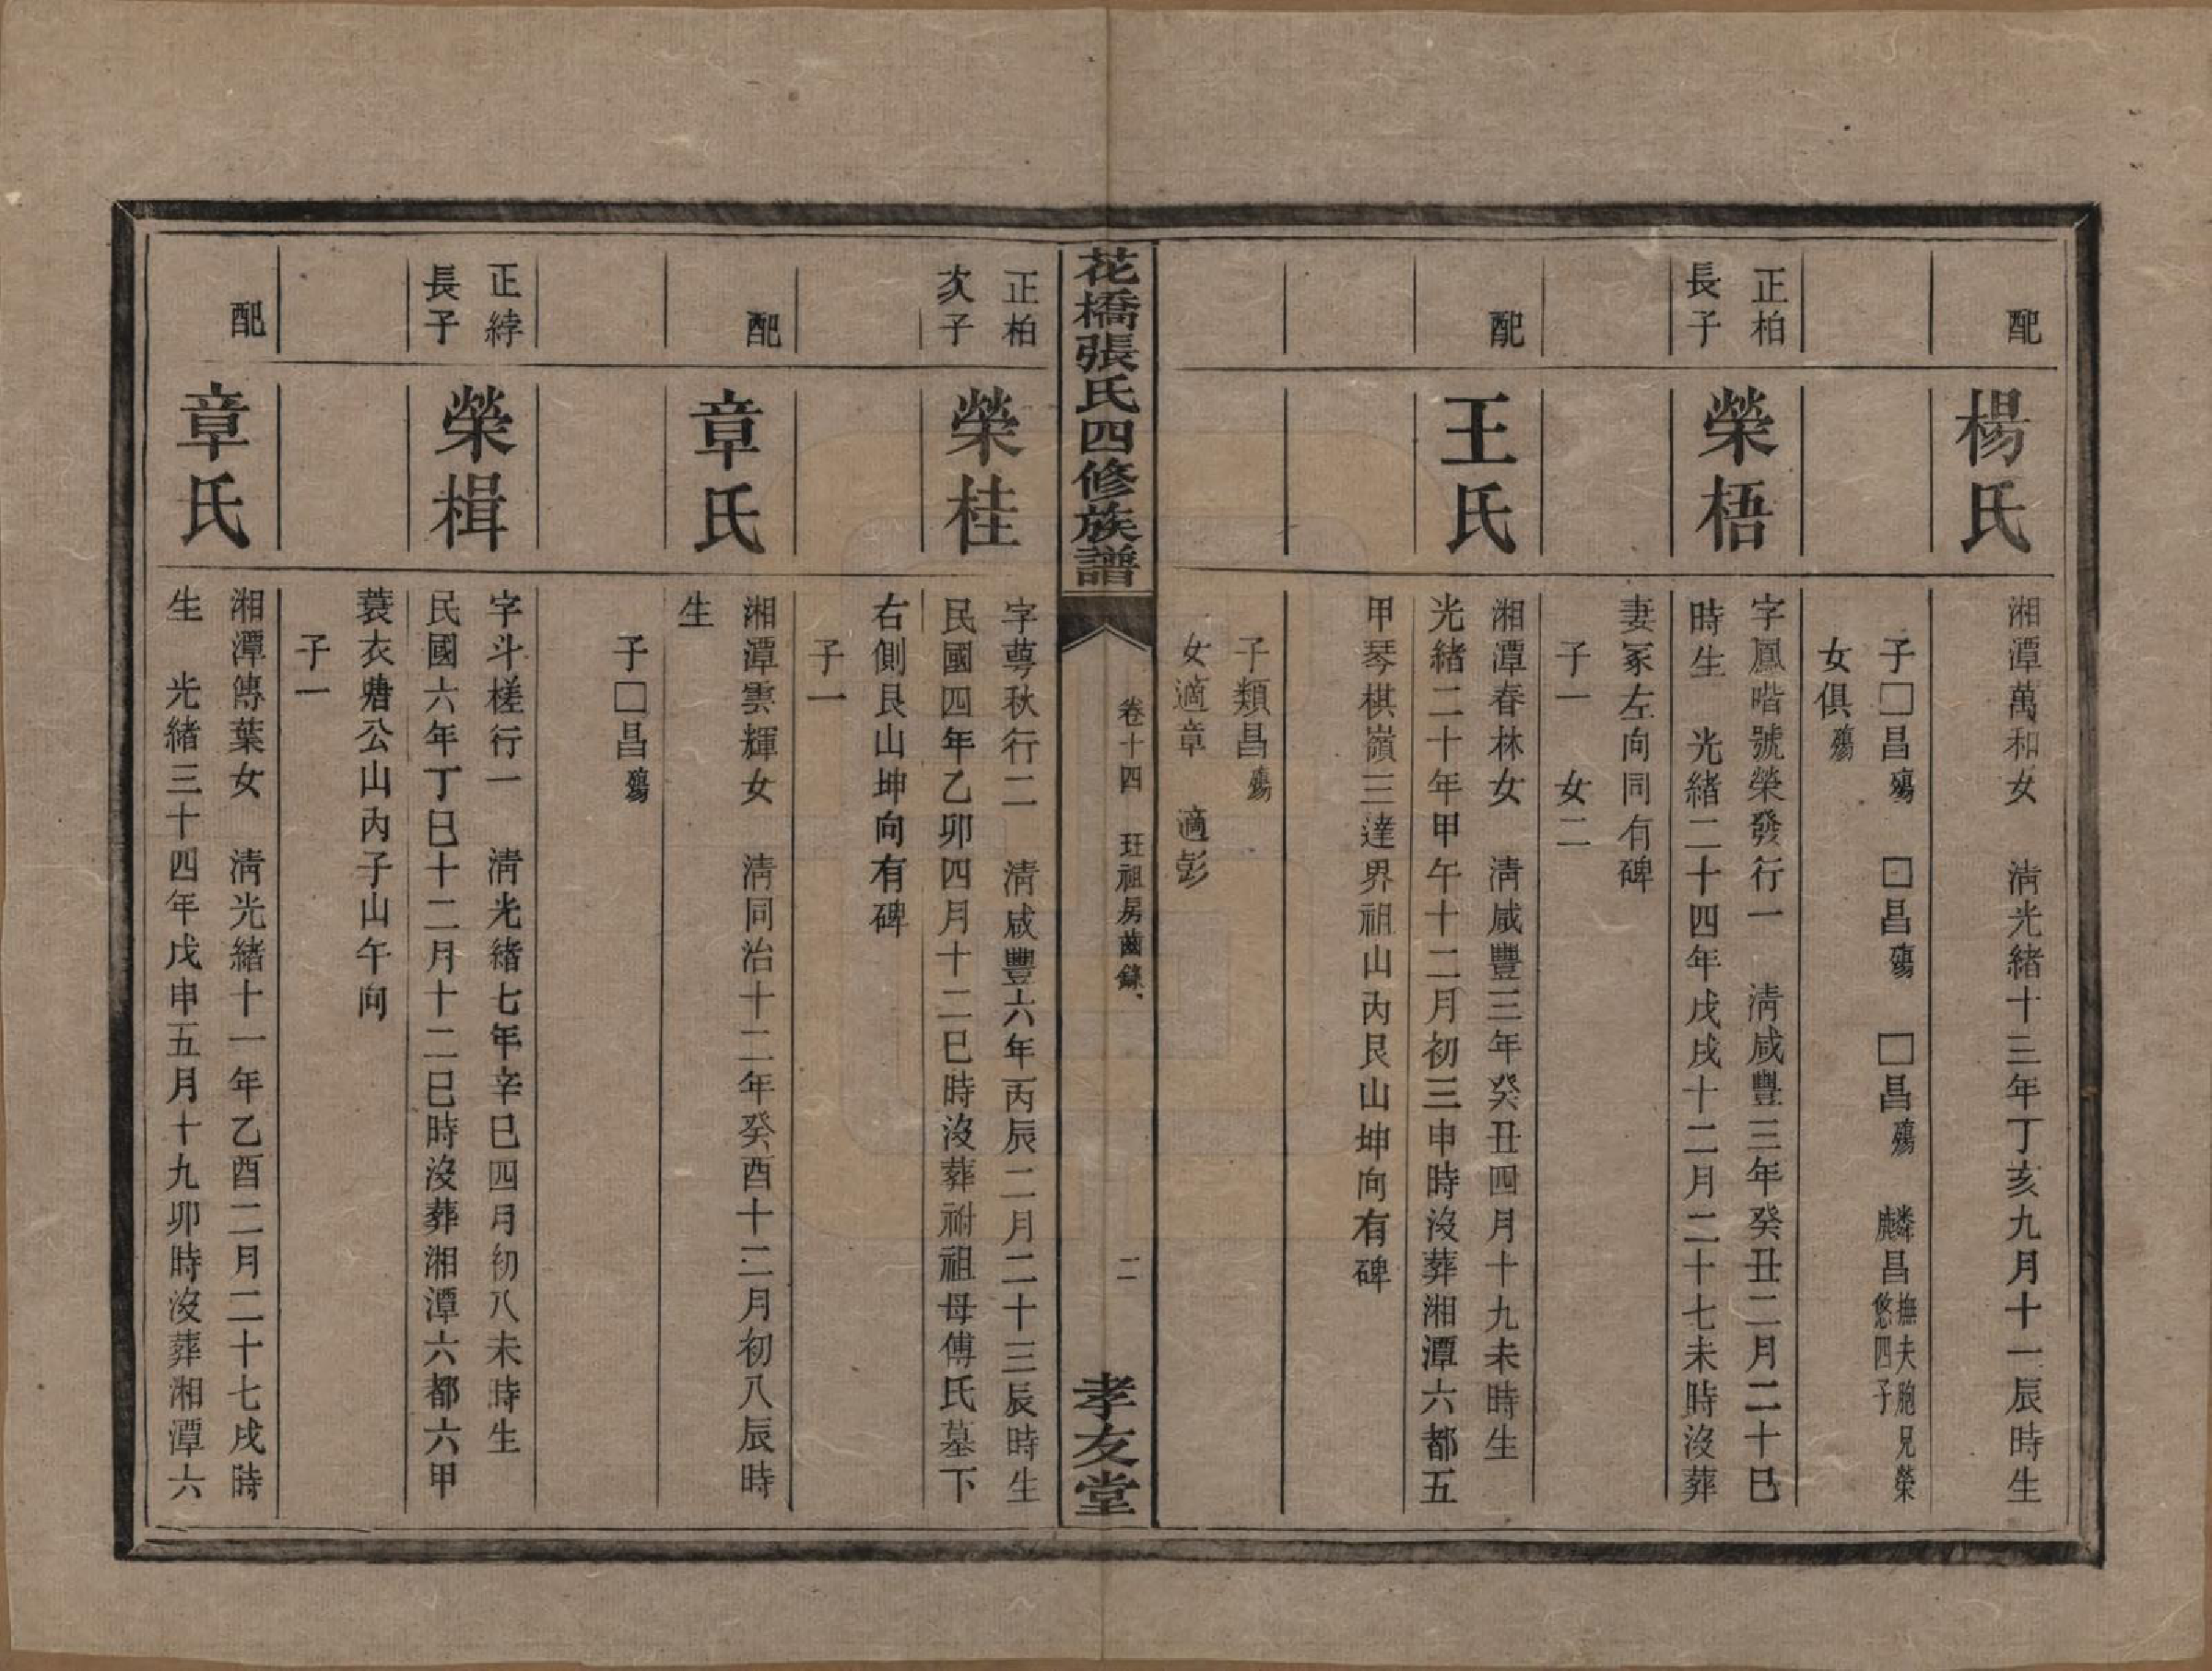 配
楊氏
湘潭萬和女　清光緒十三年丁亥九月十一辰時生
子□昌殤　□昌殤　□昌殤　麟昌撫夫胞兄榮悠四子
女俱殤
正柏
長子
榮梧
字鳳喈號榮發行一　清咸豐三年癸丑二月二十巳
時生　光緒二十四年戊戌十二月二十七未時沒葬
妻冢左向同有碑
子一　女二
配
王氏
湘潭春林女　清咸豐三年癸丑四月十九未時生
光緒二十年甲午十二月初三申時沒葬湘潭六都五
甲琴棋嶺三達界祖山內艮山坤向有碑
子類昌殤
女適章　適彭
花橋張氏四修族譜
卷十四　班祖房齒錄
二
孝友堂
正柏
次子
榮桂
字萼秋行二　清咸豐六年丙辰二月二十三辰時生
民國四年乙卯四月十二巳時沒葬祔祖母傅氏墓下
右側艮山坤向有碑
子一
配
章氏
湘潭雲輝女　清同治十二年癸酉十二月初八辰時
生
子□昌殤
正綍
長子
榮楫
字斗槎行一　清光緒七年辛巳四月初八未時生
民國六年丁巳十二月十二巳時沒葬湘潭六都六甲
蓑衣塘公山內子山午向
子一
配
章氏
湘潭傳葉女　清光緒十一年乙酉二月二十七戌時
生　光緒三十四年戊申五月十九卯時沒葬湘潭六